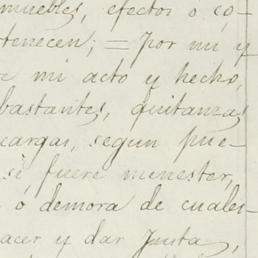 muebles, efectos o co-
tenecen; = por mi y
e mi acto y hecho,
bastantes, quitanzas
cargas, segun pue-
si fuere menester,
ó demora de cuales-
acer y dar Justa,